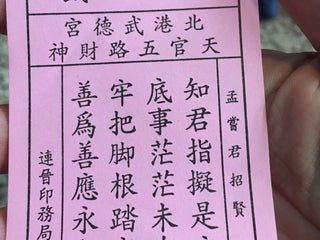 北港武德宮
天官五路財神
孟嘗君招賢
知君指擬是
底事茫茫未
牢把脚根踏
善爲善應永
連晉印務局